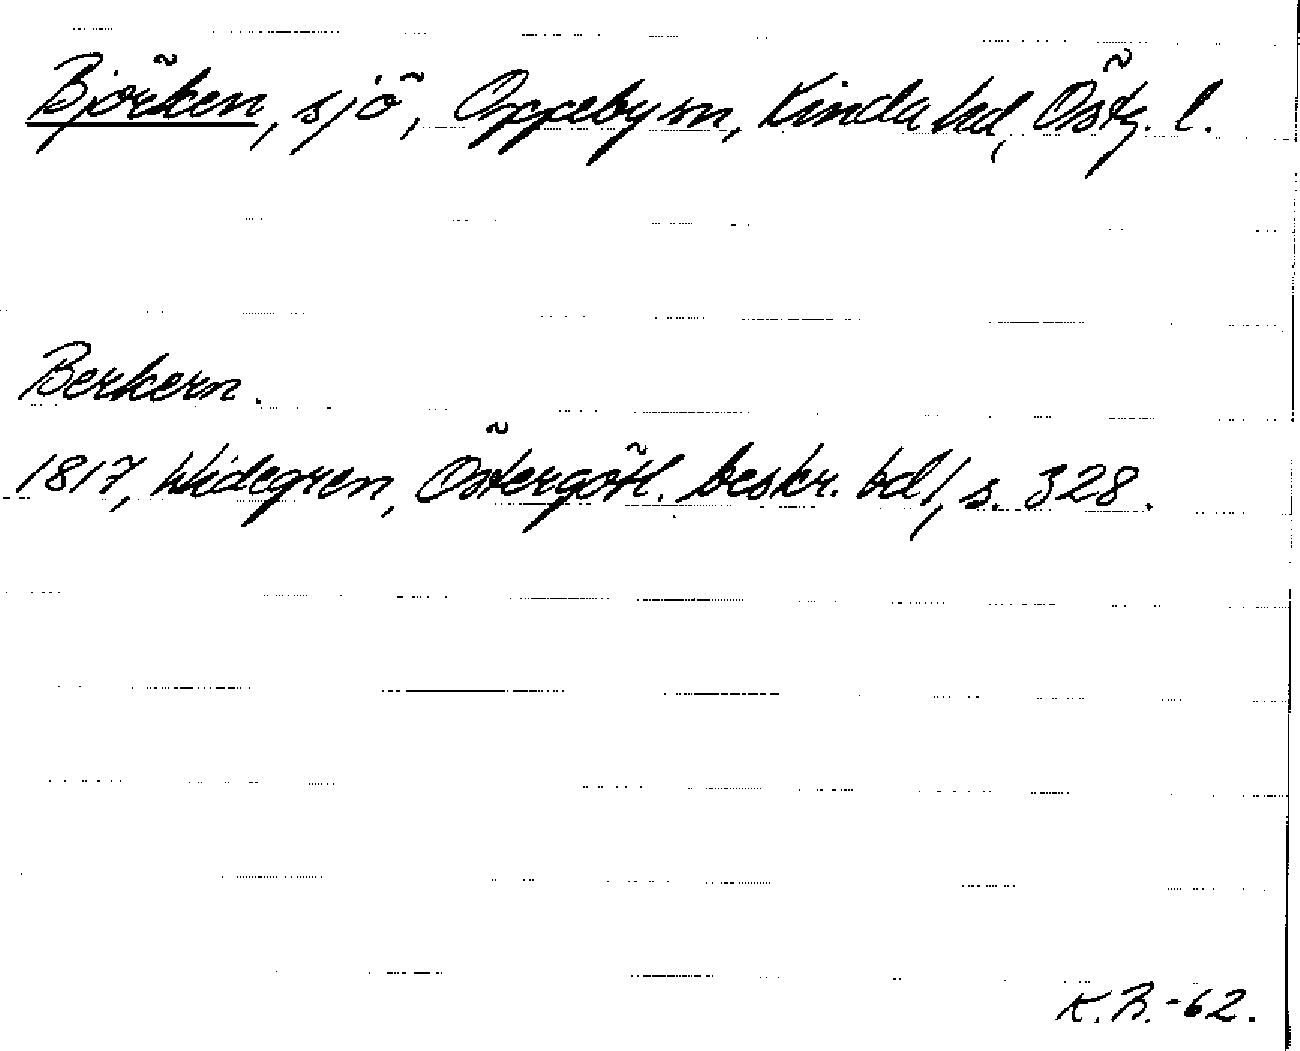 Björken, sjö, Oppeby sn, Kinda hd, Östg. l.
Berkern.
1817, Widegren, Östergötl. beskr. bd 1, s. 328.
K.B.-62.